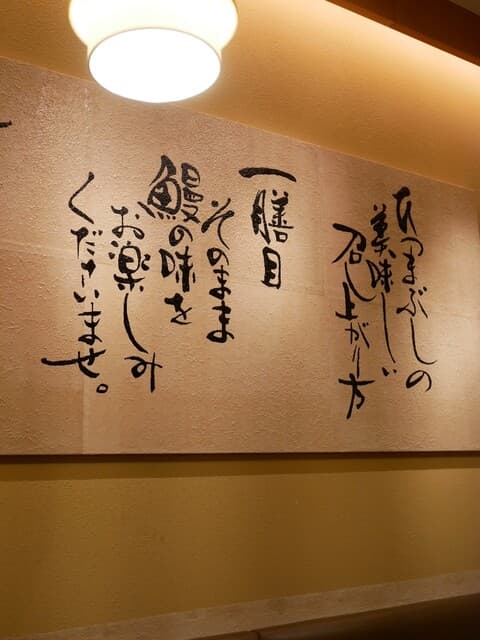 ひつまぶしの
美味しい
召し上がり方
一膳目
そのまま
鰻の味を
お楽しみ
くださいませ。